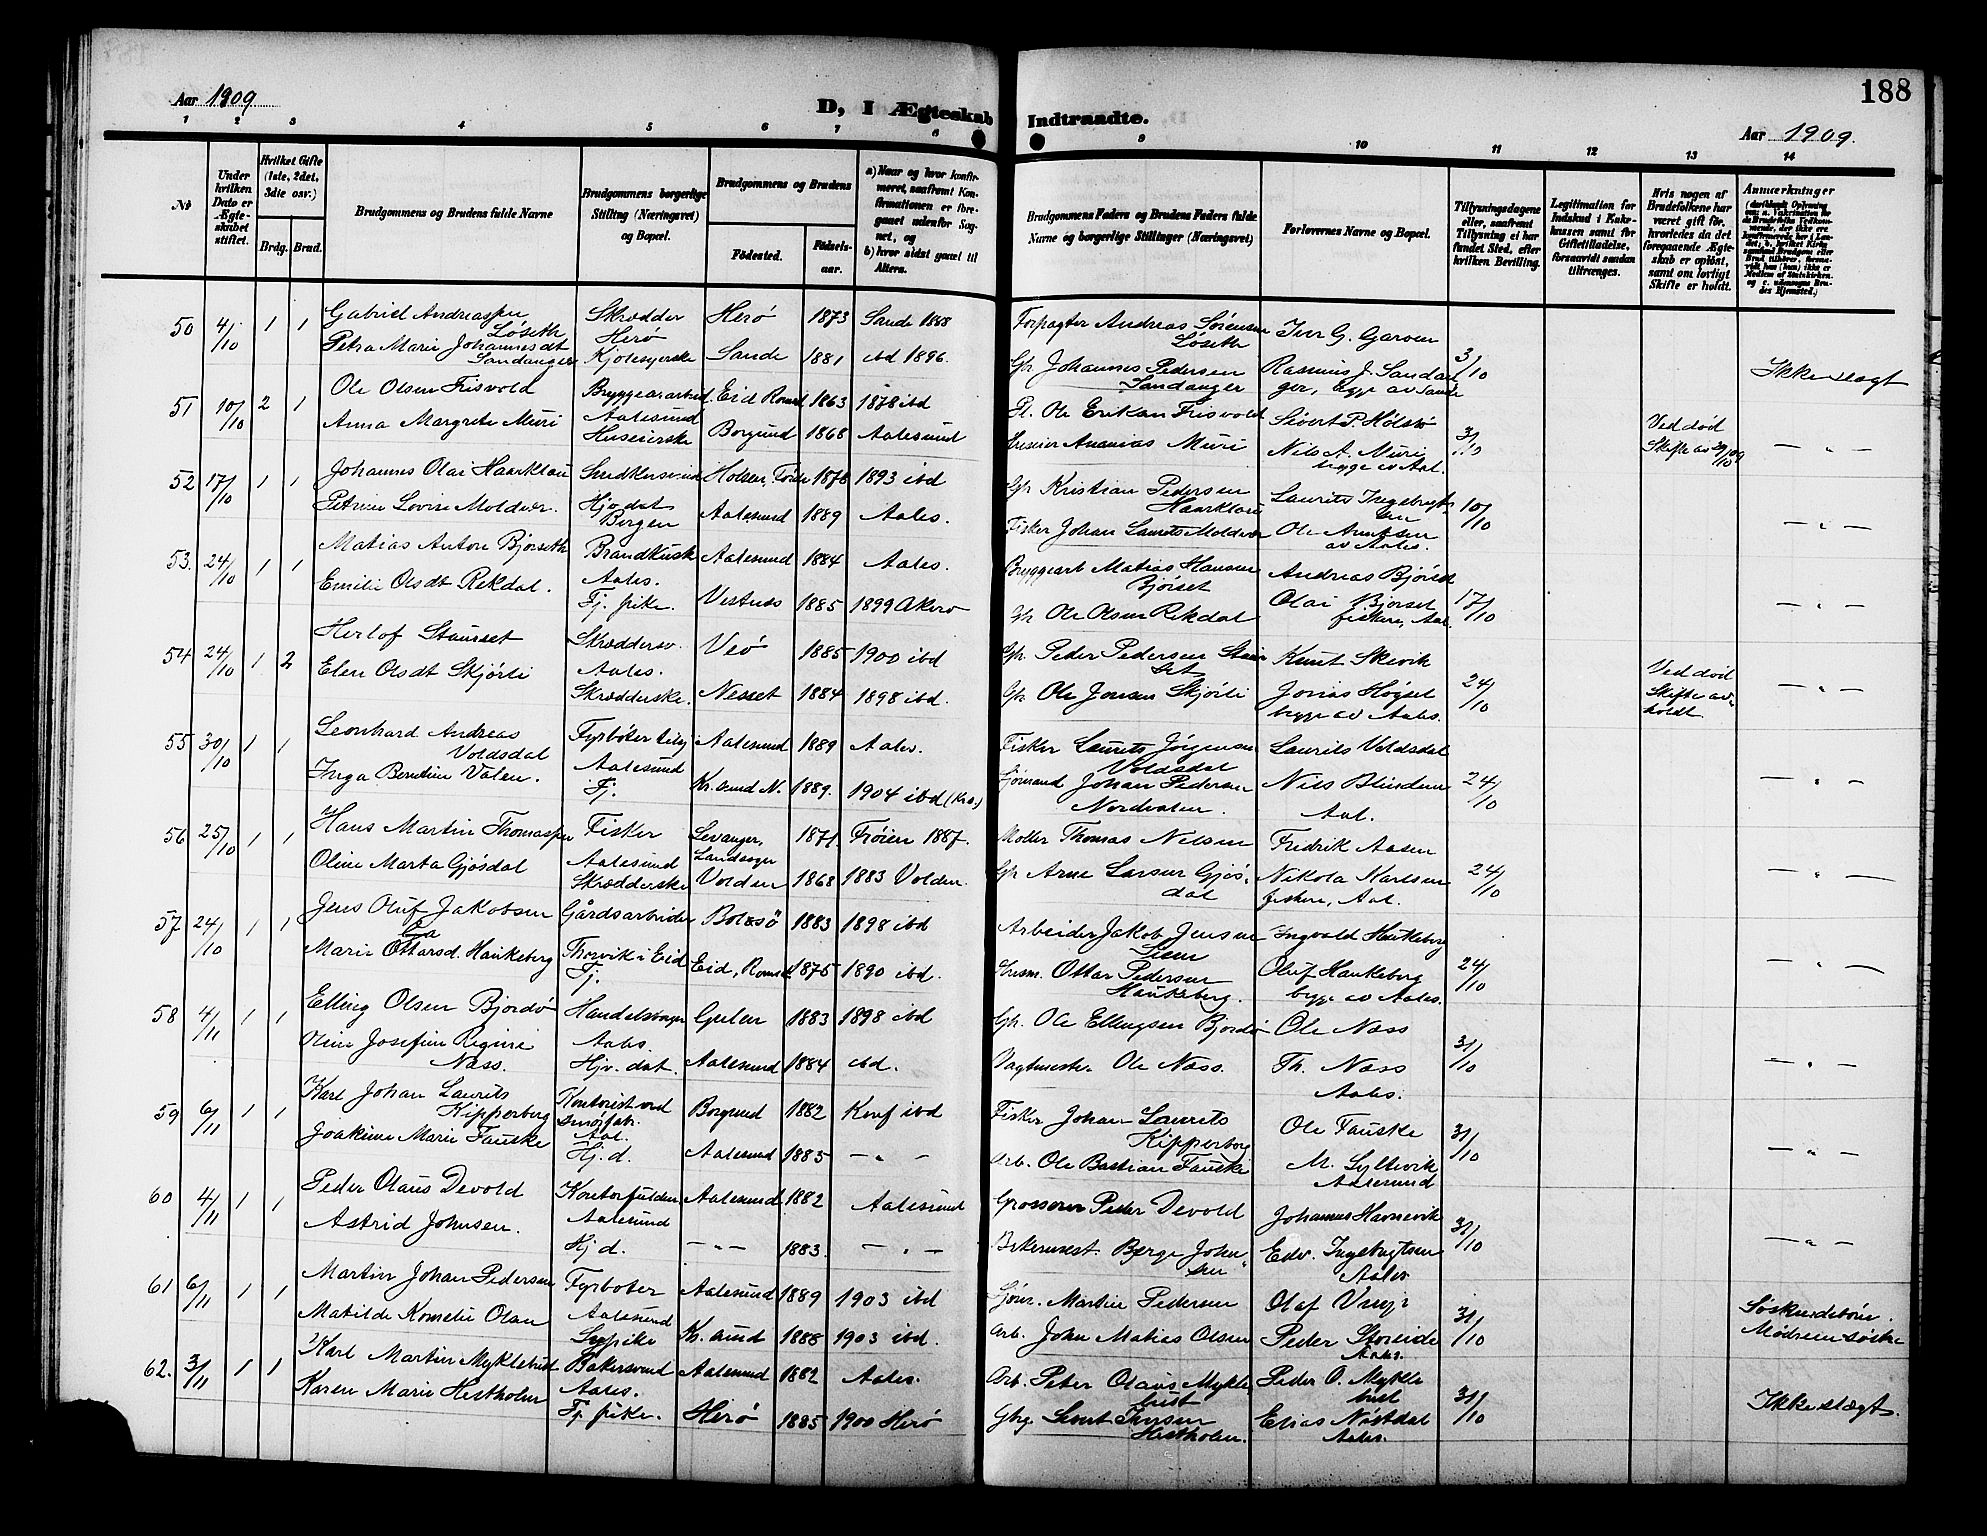 188
Aar 1909
D, I Ægteskab Indtraadte.
Aar 1909.
1 2 3 4 5 6 7 8 9 10 11 12 13 14
No
Under hvilken Dato er Ægteskabet stiftet.
Hvilket Gifte (1ste, 2det, 3die osv.)
Brdg. Brud.
Brudgommens og Brudens fulde Navne
Brudgommens borgerlige Stilling (Næringsvei) og Bopæl.
Brudgommens og Brudens
Fødested.
Fødselsaar.
a) Naar og hvor konfirmeret, saafremt Konfirmationen er foregaaet udenfor Sognet, og
b) hvor sidst gaaet til Alters.
Brudgommens Faders og Brudens Faders fulde Navne og borgerlige Stillinger (Næringsvei)
Forlovernes Navne og Bopæl.
Tillysningsdagene eller, saafremt Tillysning ei har fundet Sted, efter hvilken Bevilling.
Legitimation for Indskud i Enkekassen samt for Giftetilladelse, forsaavidt saadan tiltrænges.
Hvis nogen af Brudefolkene har været gift før, hvorledes da det foregaaende Ægteskab er opløst, samt om lovligt Skifte er holdt.
Anmærkninger
50 4/10 1 1 Gabriel Andreassen Løseth Skrædder Herö Herö 1873 Sande 1888 Forpagter Andreas Sörensen Løseth Iver G. Garven 3/10 Ikke slægt
Petra Marie Johannesdt Sandanger Kjolesyerske Sande 1881 ibd 1896. Gbr Johannes Pedersen Sandanger Rasmus J. Sandanger, begge av Sande
51 10/10 2 1 Ole Olsen Frisvold Bryggearbeid Aalesund Eid Romsd 1863 1878 ibd Ole Eriksen Frisvold Sivert P. Holstö 3/10 Ved död Skifte av 30/10 09 — " —
Anna Margrete Muri Huseierske Borgund 1868 Aalesund Huseier Ananias Muri Nils A. Muri begge av Aal.
52 17/10 1 1 Johannes Olai Haarklau Holsen, Förde 1878 1893 ibd Gbr Kristian Pedersen Haarklau Laurits Ingebrigtsen 10/10 — " —
Petrine Lovise Moldver. Hj. dat Bergen Aalesund 1889 Aales. Fisker Johan Laurits Moldver Ole Amundsen av Aales.
53. 24/10 1 1 Matias Anton Bjørseth Brandkusk Aales. Aalesund 1884 Aales. Bryggearb Matias Hansen Bjørset Andreas Bjørset 17/10 — " —
Emilie Olsdt Rekdal. Tj. pike. Vestnes 1885 1899 Akerö Gbr Ole Olsen Rekdal Olai Bjørset fiskere, Aal.
54 24/10 1 2 Herlof Staurset Skræddersv. Aales. Veö 1885 1900 ibd Gbr. Peder Pedersen Staurset Knut Skevik 24/10 Ved död Skifte avholdt — " —
Elen Olsdt Skjørli Skrædderske. Nesset 1884 1898 ibd. Gbr Ole Jonsen Skjørli Jonas Høgset begge av Aales.
55 30/10 1 1 Leonhard Andreas Voldsdal Fyrböter Aalesund Aalesund 1889 Aales. Fisker Laurits Jørgensen Voldsdal Laurits Voldsdal 24/10 — " —
Inga Berntine Valen. Tj. Kr. sund N. 1889. 1904 ibd (Kr.s.) Sjömand Johan Pedersen Nordvalen Nils Blindem Aal.
56 25/10 1 1 Hans Martin Thomassen Fisker Aalesund Levanger, Landseger 1871 Fröien 1887. Möller Thomas Nelsen Fredrik Aasen 24/10 — " —
Oline Marta Gjøsdal Skrædderske Volden 1868 1883 Volden. Gbr Arne Larsen Gjøsdal Nikolai Karlsen fiskere, Aal.
57 24/10 1 1 Jens Oluf Jakobsen Gårdsarbeider Bolsö 1883 1898 ibd Arbeider Jakob Jensen Ingvald Haukeberg 24/10 — " —
Marie Ottarsd. Haukeberg Thorvik i Eid Tj. Eid, Romsd 1875 1890 ibd. Husm. Ottar Pedersen Haukeberg. Oluf Haukeberg begge av Aales.
58 4/11 1 1 Elling Olsen Bjordö Handelsborger Aales. Gulen 1883 1898 ibd Gbr. Ole Ellingsen Bjordö Ole Næss 31/10 — " —
Oline Josefine Regine Næss. Hjv. dat. Aalesund 1884 ibd. Vagtmester Ole Næss. Th. Næss Aales.
59 6/11 1 1 Karl Johan Laurits Kipperberg Kontorist ved smörfabr. Aal. Borgund 1882 Konf ibd Fisker Johan Laurits Kipperberg Ole Fauske 31/10 — " —
Joakime Marie Fauske Hj. d. Aalesund 1885 — " — Arb. Ole Bastian Fauske M. Syltevik Aalesund
60 4/11 1 1 Peder Olaus Devold Aalesund Aalesund 1882 Aalesund Grosserer Peder Devold Johannes Havnevik 31/10 — " —
Astrid Johnsen. Hj d. — " — 1883. — " — Børge Johnsen Edv. Ingebrigtsen Aales
61 6/11 1 1 Martin Johan Pedersen Fyrböter Aalesund Aalesund 1889 1903 ibd Sjöm. Martin Pedersen Olaf 31/10 Söskendebörn. Mödrene söstre
Matilde Kornelie Olsen Sypike Kr. sund 1888 1903 ibd. Arb. John Matias Olsen Peder Storeide Aales.
62. 3/11 1 1 Karl Martin Myklebust Bakersvend Aales. Aalesund 1882 Aales. Arb. Peter Olaus Myklebust Peder O. Myklebust 31/10 Ikke slægt.
Karen Marie Hestholm Tj. pike. Herö 1885 1900 Herö Gbr. Hestholm. Elias Nöstdal Aales.